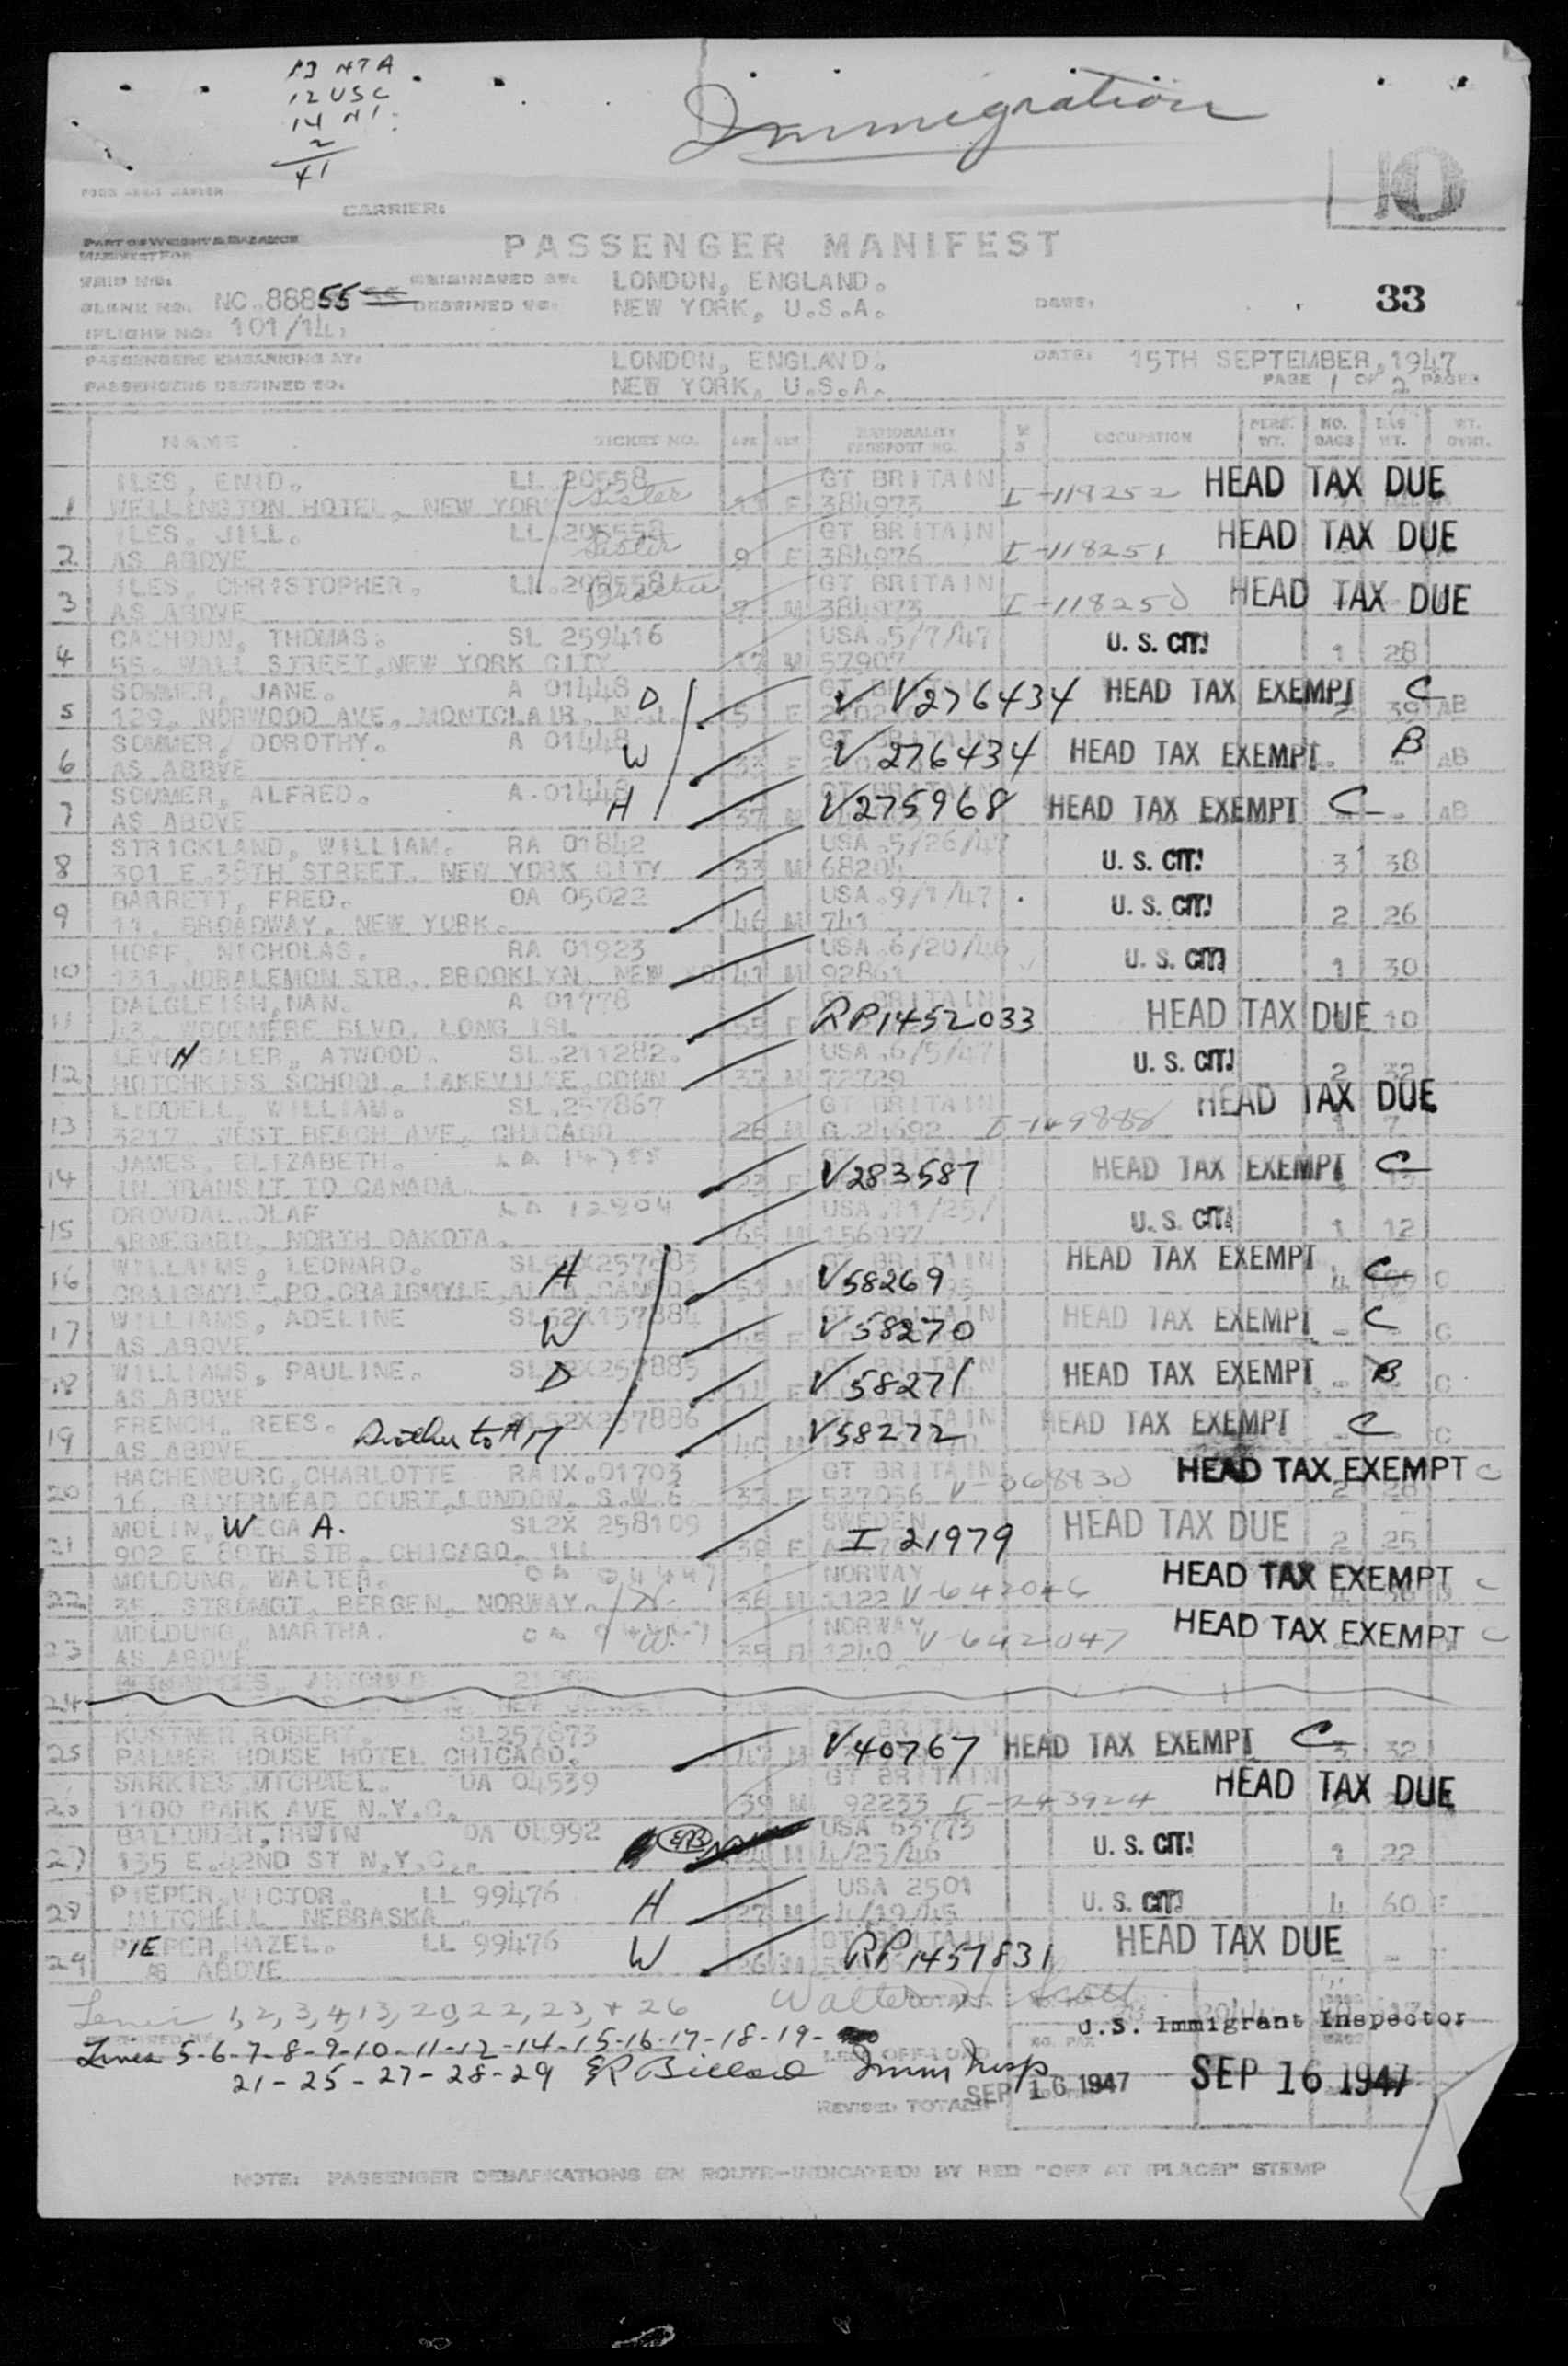 13 HTA
12 USC
14 HI
2
41
Immigration
10
CARRIER:
PART OF WEIGHT & BALANCE
MANIFEST FOR
PASSENGER MANIFEST
ORIGINATED AT: LONDON, ENGLAND.
NC.88855 DESTINED TO: NEW YORK, U.S.A. DATE: 33
FLIGHT NO: 101/14.
PASSENGERS EMBARKING AT: LONDON, ENGLAND. DATE: 15TH SEPTEMBER, 1947
PASSENGERS DESTINED TO: NEW YORK, U.S.A. PAGE 1 OF 2 PAGES
NAME TICKET NO. AGE SEX NATIONALITY PASSPORT NO. OCCUPATION PERS. WT. NO. BAGS BAG WT.
ILES, ENID. LL 20558 GT BRITAIN HEAD TAX DUE
1 WELLINGTON HOTEL, NEW YORK Sister F 384973 I-118252
ILES, JILL. LL.205558 GT BRITAIN HEAD TAX DUE
2 AS ABOVE Sister 9 F 384976 I-118251
ILES, CHRISTOPHER. LL.205558 GT BRITAIN HEAD TAX DUE
3 AS ABOVE Brother 7 M 384973 I-118250
CALHOUN, THOMAS. SL 259416 USA.5/7/47 U. S. CIT.
4 55. WALL STREET, NEW YORK CITY M 57907 1 28
SOMMER, JANE. A 01448 D V V276434 HEAD TAX EXEMPT C
5 129, NORWOOD AVE, MONTCLAIR, N.J. 5 F 39 AB
SOMMER, DOROTHY. A 01448 W V 276434 HEAD TAX EXEMPT B
6 AS ABOVE 33 F AB
SOMMER, ALFRED. A.01448 H V275968 HEAD TAX EXEMPT C
7 AS ABOVE 37 M AB
STRICKLAND, WILLIAM. RA 01842 USA.5/26/47 U. S. CIT.
8 301 E.38TH STREET, NEW YORK CITY 33 M 68204 3 38
BARRETT, FRED. OA 05022 USA.9/1/47 U. S. CIT.
9 11, BROADWAY, NEW YORK. 46 M 741 2 26
HOFF, NICHOLAS. RA 01923 USA.6/20/46 U. S. CIT.
10 131, JORALEMON STR. BROOKLYN, NEW 41 M 92861 1 30
DALGLEISH, NAN. A 01778 RP1452033 HEAD TAX DUE
11 43, WOODMERE BLVD, LONG ISL 55 F 10
LEVENSALER, ATWOOD. SL.211282. USA.6/5/47 U. S. CIT.
12 HOTCHKISS SCHOOL, LAKEVILLE, CONN 37 M 72729 2 32
LIDDELL, WILLIAM. SL.257867 GT BRITAIN HEAD TAX DUE
13 3217, WEST BEACH AVE, CHICAGO 26 M G.24692 I-149888 1 7
JAMES, ELIZABETH. V283587 HEAD TAX EXEMPT C
14 IN TRANSIT TO CANADA 23 F
DROVDAL, OLAF LA 12904 USA.11/25/ U. S. CIT.
15 ARNEGARD, NORTH DAKOTA. 65 M 156997 1 12
WILLAIMS, LEONARD. SL52X257883 H V58269 HEAD TAX EXEMPT C
16 CRAIGMYLE, PO. CRAIGMYLE, ALTA, CANADA 51 M 4 C
WILLIAMS, ADELINE SL52X157884 W V58270 HEAD TAX EXEMPT C
17 AS ABOVE 45 F C
WILLIAMS, PAULINE. SL52X257885 D V58271 HEAD TAX EXEMPT B
18 AS ABOVE 14 F C
FRENCH, REES. SL52X257886 V58272 HEAD TAX EXEMPT C
19 AS ABOVE Brother to #17 M C
HACHENBURG, CHARLOTTE RAIX.01703 GT BRITAIN HEAD TAX EXEMPT C
20 16, RIVERMEAD COURT, LONDON, S.W.6 37 F 537056 V-068830 2 28
MOLIN, WEGA A. SL2X 258109 SWEDEN I 21979 HEAD TAX DUE
21 902 E 80TH STR. CHICAGO, ILL 39 F 2 25
MOLDUNG, WALTER. OA 04447 NORWAY HEAD TAX EXEMPT C
22 35, STRIMGT, BERGEN, NORWAY. H. 36 M 1122 V-642046
MOLDUNG, MARTHA. NORWAY HEAD TAX EXEMPT C
23 AS ABOVE W. 35 1240 V-642047
24
KUSTNER ROBERT. SL257873 V40767 HEAD TAX EXEMPT C
25 PALMER HOUSE HOTEL CHICAGO. 47 M 3 32
SARKIES, MICHAEL. OA 04539 GT BRITAIN HEAD TAX DUE
26 1100 PARK AVE N.Y.C. 39 M 92233 I-243924
IRWIN OA 04992 USA 63773 U. S. CIT.
27 135 E.42ND ST N.Y.C. ERB M 4/25/46 1 22
PIEPER, VICTOR. LL 99476 H USA 2501 U. S. CIT.
28 MITCHELL NEBRASKA 27 M 4/19/45 4 60 F
PIEPER, HAZEL. LL 99476 W RP1457831 HEAD TAX DUE
29 AS ABOVE 26
Lines 1,2,3,4,13,20,22,23,+ 26 Walter H Scott
U.S. Immigrant Inspector
Lines 5-6-7-8-9-10-11-12-14-15-16-17-18-19-
21-25-27-28-29 ER Billard Imm Insp
SEP 16 1947 SEP 16 1947
REVISED TOTALS
NOTE: PASSENGER DEBARKATIONS EN ROUTE-INDICATED BY RED "OFF AT (PLACE)" STAMP